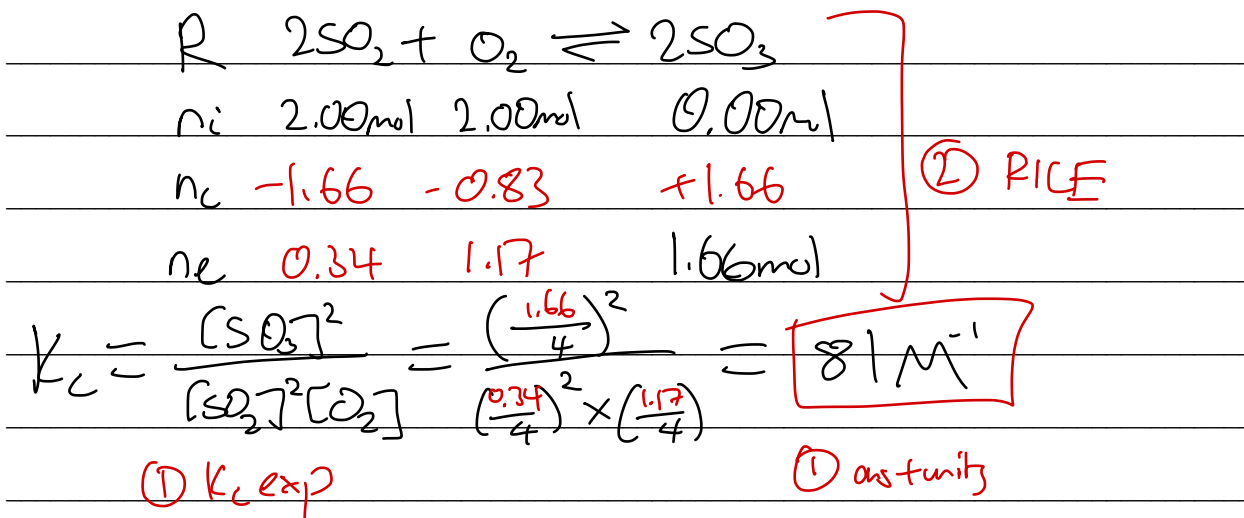 R 2SO₂ + O₂ ⇌ 2SO₃
ni 2.00mol 2.00mol 0.00mol
② RICE
nc -1.66 -0.83 +1.66
ne 0.34 1.17 1.66mol
Kc = [SO₃]² / [SO₂]²[O₂] = (1.66/4)² / (0.34/4)² × (1.17/4) = 81 M⁻¹
① Kc exp ① ans + units